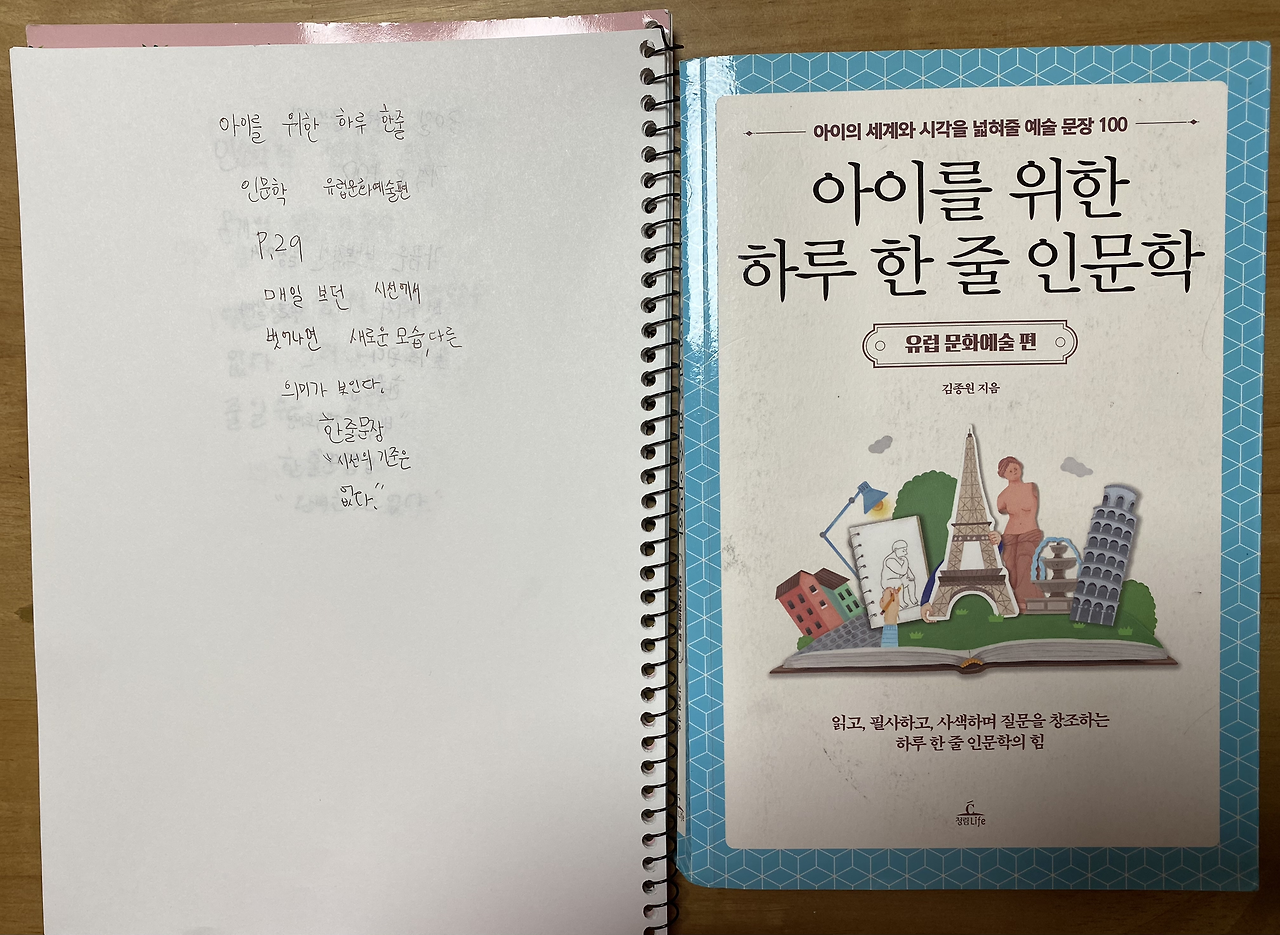 아이를 위한 하루 한줄
인문학 유럽문화예술편
P.29
매일 보던 시선에서
벗어나면 새로운 모습, 다른
의미가 보인다.
한줄문장
"시선의 기준은
없다."
아이의 세계와 시각을 넓혀줄 예술 문장 100
아이를 위한
하루 한 줄 인문학
유럽 문화예술 편
김종원 지음
읽고, 필사하고, 사색하며 질문을 창조하는
하루 한 줄 인문학의 힘
청림Life